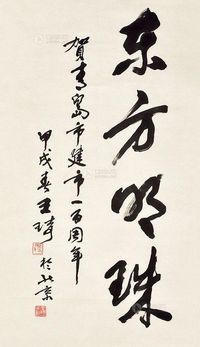 东方明珠
贺青岛市建市一百周年
甲戌春王琦
于北京